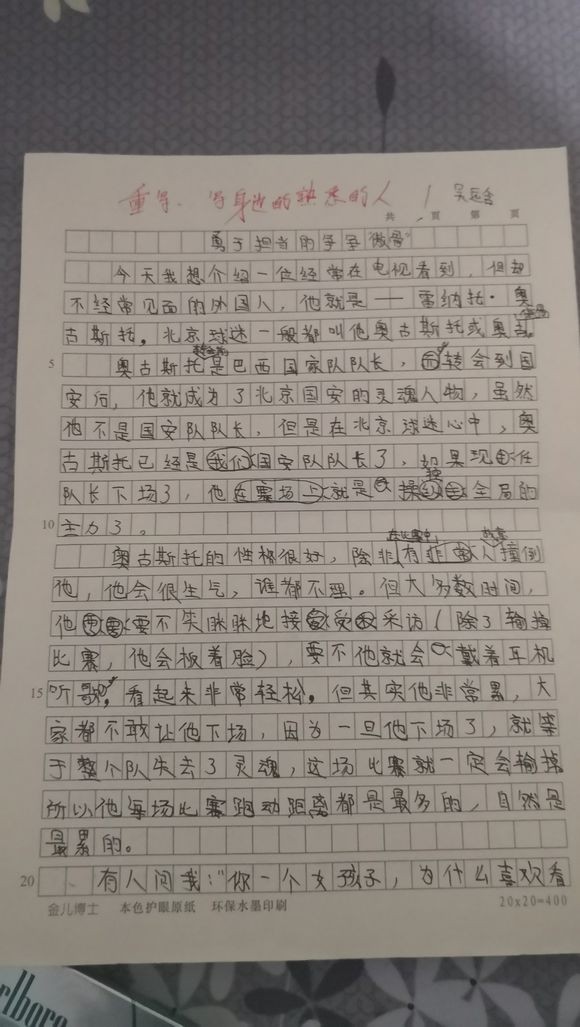 重写、写身边的熟悉的人
共 页 第 页
勇于担当的
今天我想介绍一位经常在电视看到,但却
不经常见面的外国人,他就是——雷纳托·奥
古斯托。北京球迷一般都叫他奥古斯托或奥
5 奥古斯托是巴西国家队队长,转会到国
安后,他就成为了北京国安的灵魂人物,虽然
他不是国安队队长,但是在北京球迷心中,奥
古斯托已经是我们国安队队长了,如果现任
队长下场了,他在赛场上就是操全局的
10 主力了。
在比赛中 故意
奥古斯托的性格很好,除非有人撞倒
他,他会很生气,谁都不理。但大多数时间,
他要不笑眯眯地接受采访(除了输掉
比赛,他会板着脸),要不他就会戴着耳机
15 听歌,看起来非常轻松。但其实他非常累,大
家都不敢让他下场,因为一旦他下场了,就等
于整个队失去了灵魂,这场比赛就一定会输掉
所以他每场比赛跑动距离都是最多的,自然是
最累的。
20 有人问我:“你一个女孩子,为什么喜欢看
金儿博士 本色护眼原纸 环保水墨印刷 20x20=400
rlboro